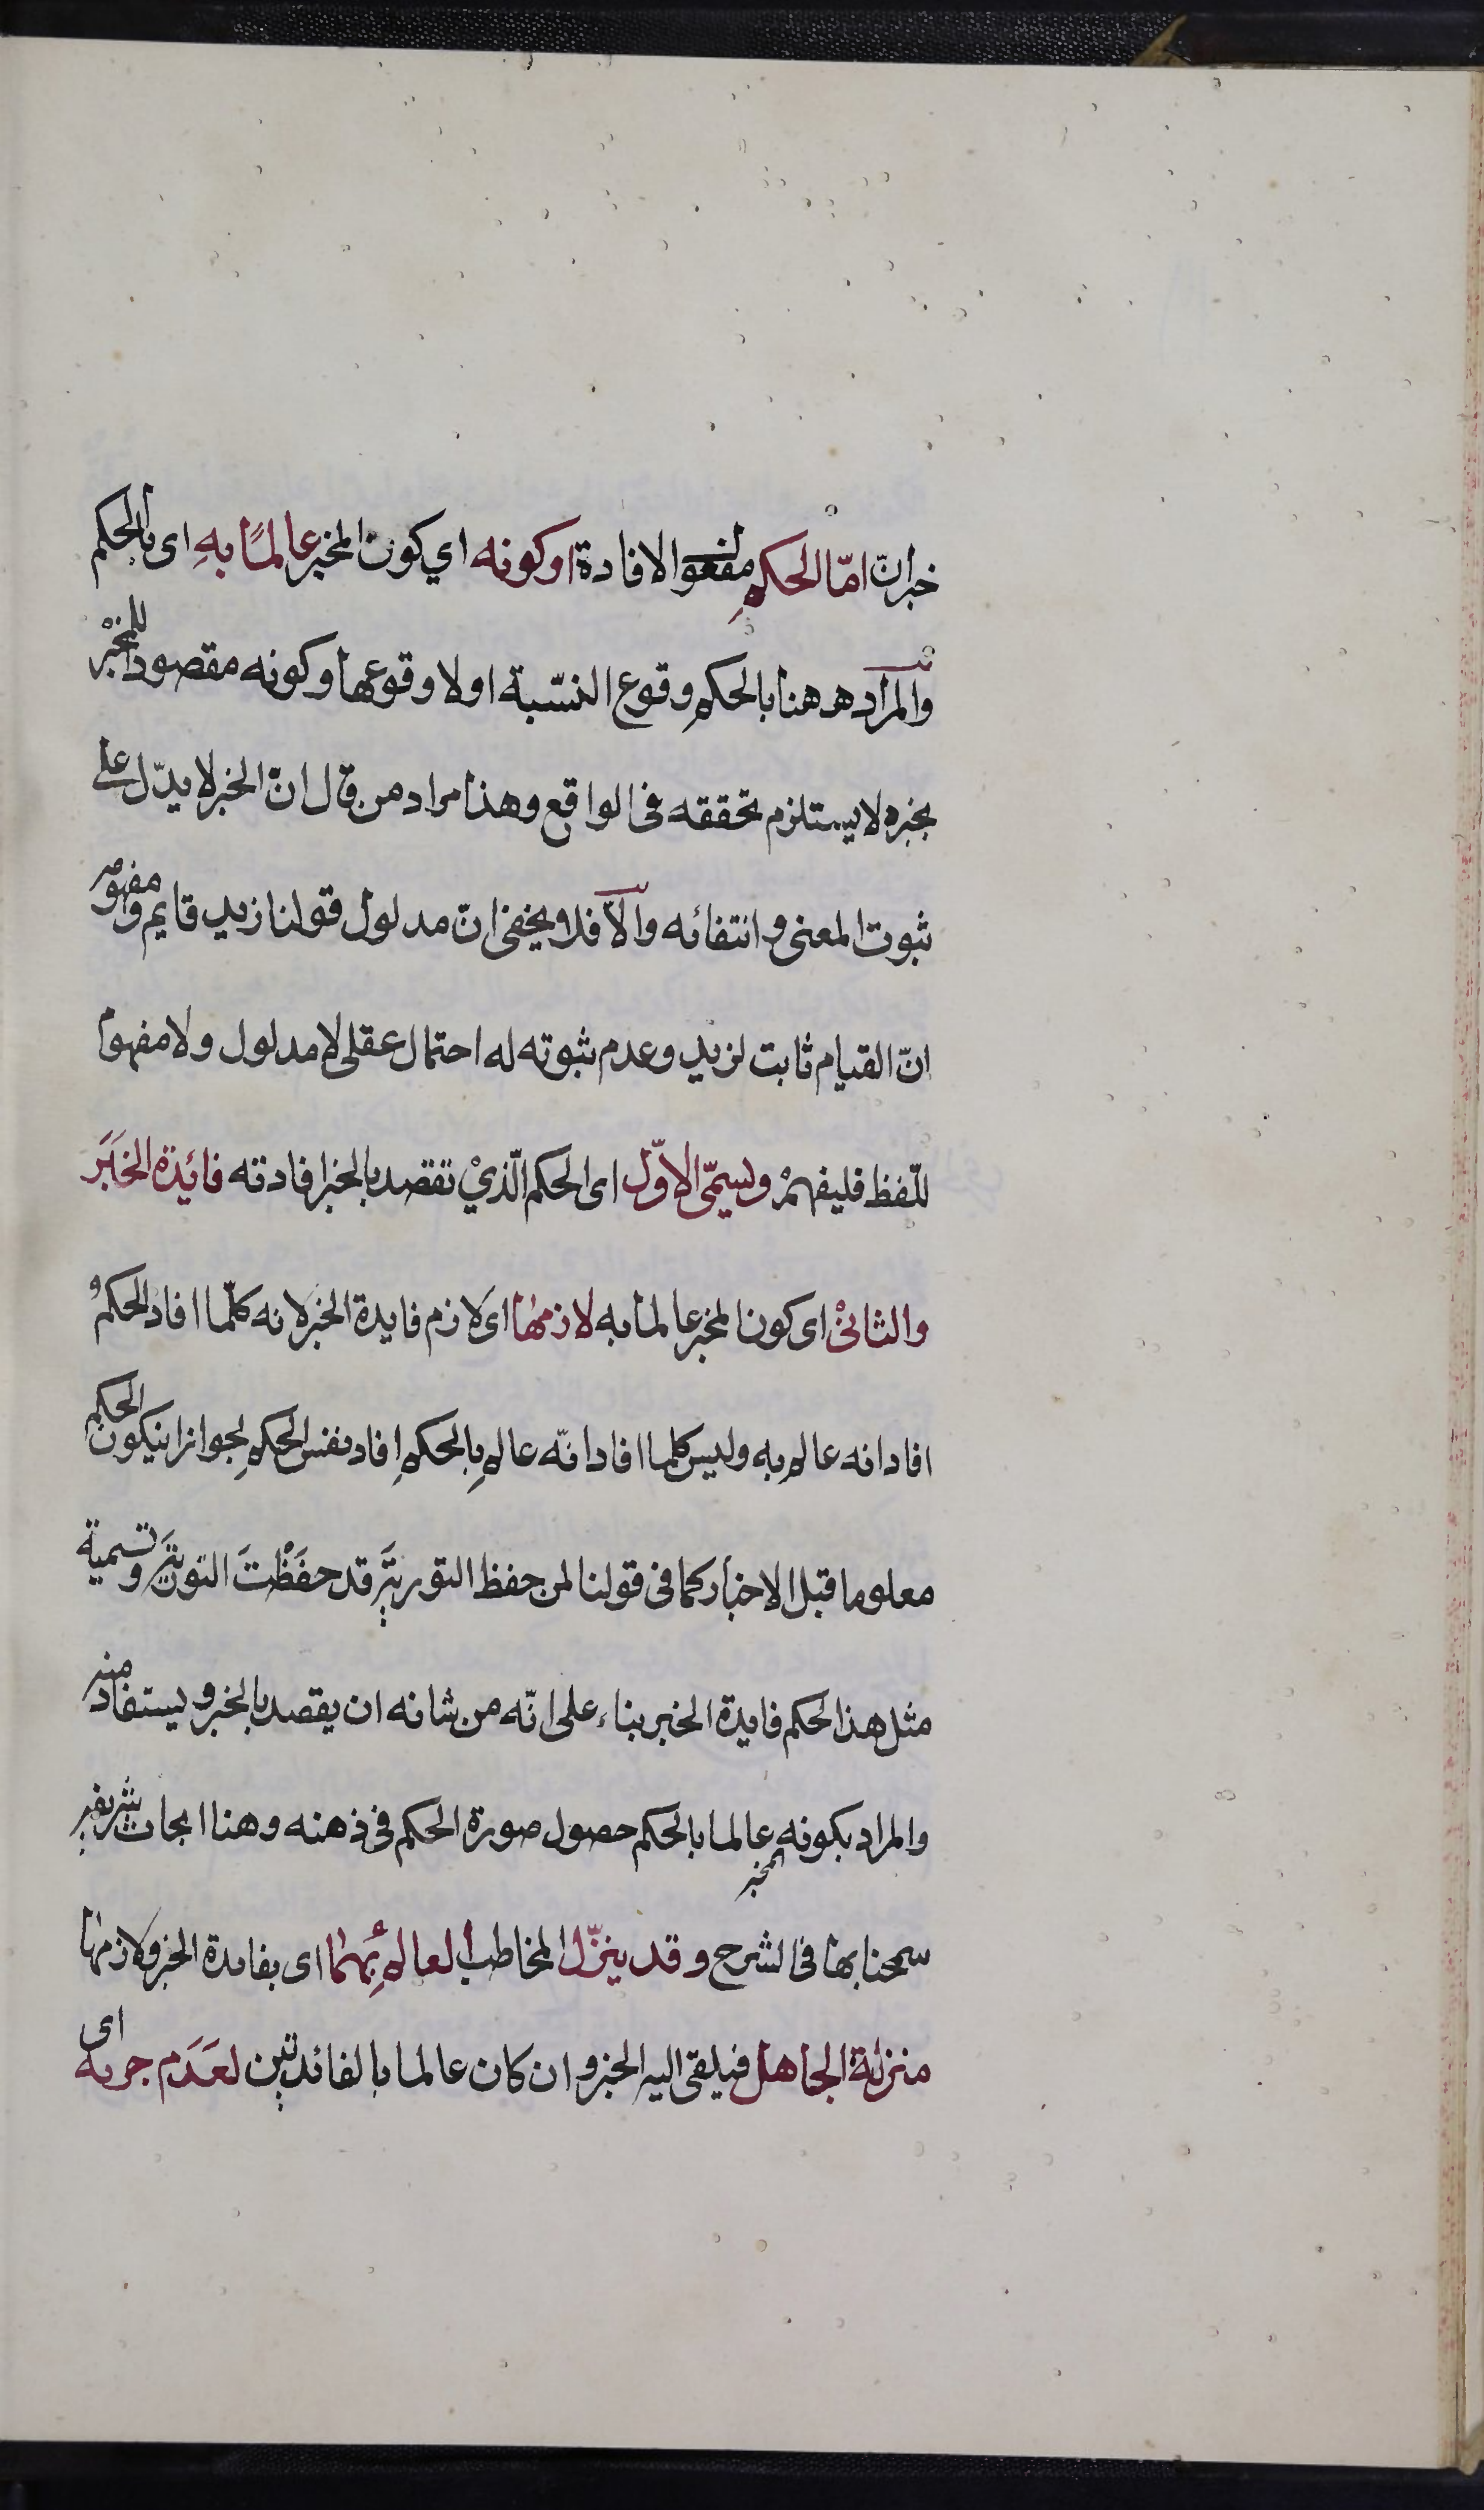 خبران امّا الحكم مفعول الافادة او كونه اي كون المخبر عالمًا بهِ اى بالحكم
والمراد هٰهنا بالحكم وقوع النسّبة اولا وقوعها وكونه مقصودا للمخبْر
بخبره لا يستلزم تحققه فى الواقع وهذا مراد من قال انّ الخبر لا يدّل على
ثبوت المعنى وانتفائه والّا فلا يخفى انّ مدلول قولنا زيد قايم ومفهومه
انّ القيام ثابت لزيد وعدم ثبوته له احتمال عقلى لا مدلول ولا مفهوم
للّفظ فليفهمْ ويسمّى الاوّل اى الحكم الّذيْ تقصد بالخبر افادته فائِدة الخَبَر
والثانىْ اى كون المخبر عالما به لازمها اى لازم فايدة الخبر لانه كلّما افاد الحكم
افاد انه عالم به وليس كلما افاد انّه عالم بالحكم افاد نفس الحكم لجواز ان يكون الحكم
معلوما قبل الاخبار كما فى قولنا لمن حفظ التورية قد حفَظْتَ التورية وتسمية
مثل هذا الحكم فايدة الخبر بناء على انّه من شانه ان يقصد بالخبر ويستفاد منه
والمراد بكونه عالما بالحكم حصول صورة الحكم فى ذهنه وهنا ابحاث شريفة
المخبر
سمحنا بها فى الشرح وقد ينزّل المخاطب العالم بهما اى بفايدة الخبر ولازمها
منزلة الجاهل فيلقى اليه الخبر وان كان عالما بالفائدتين لعَدَم جريه اى